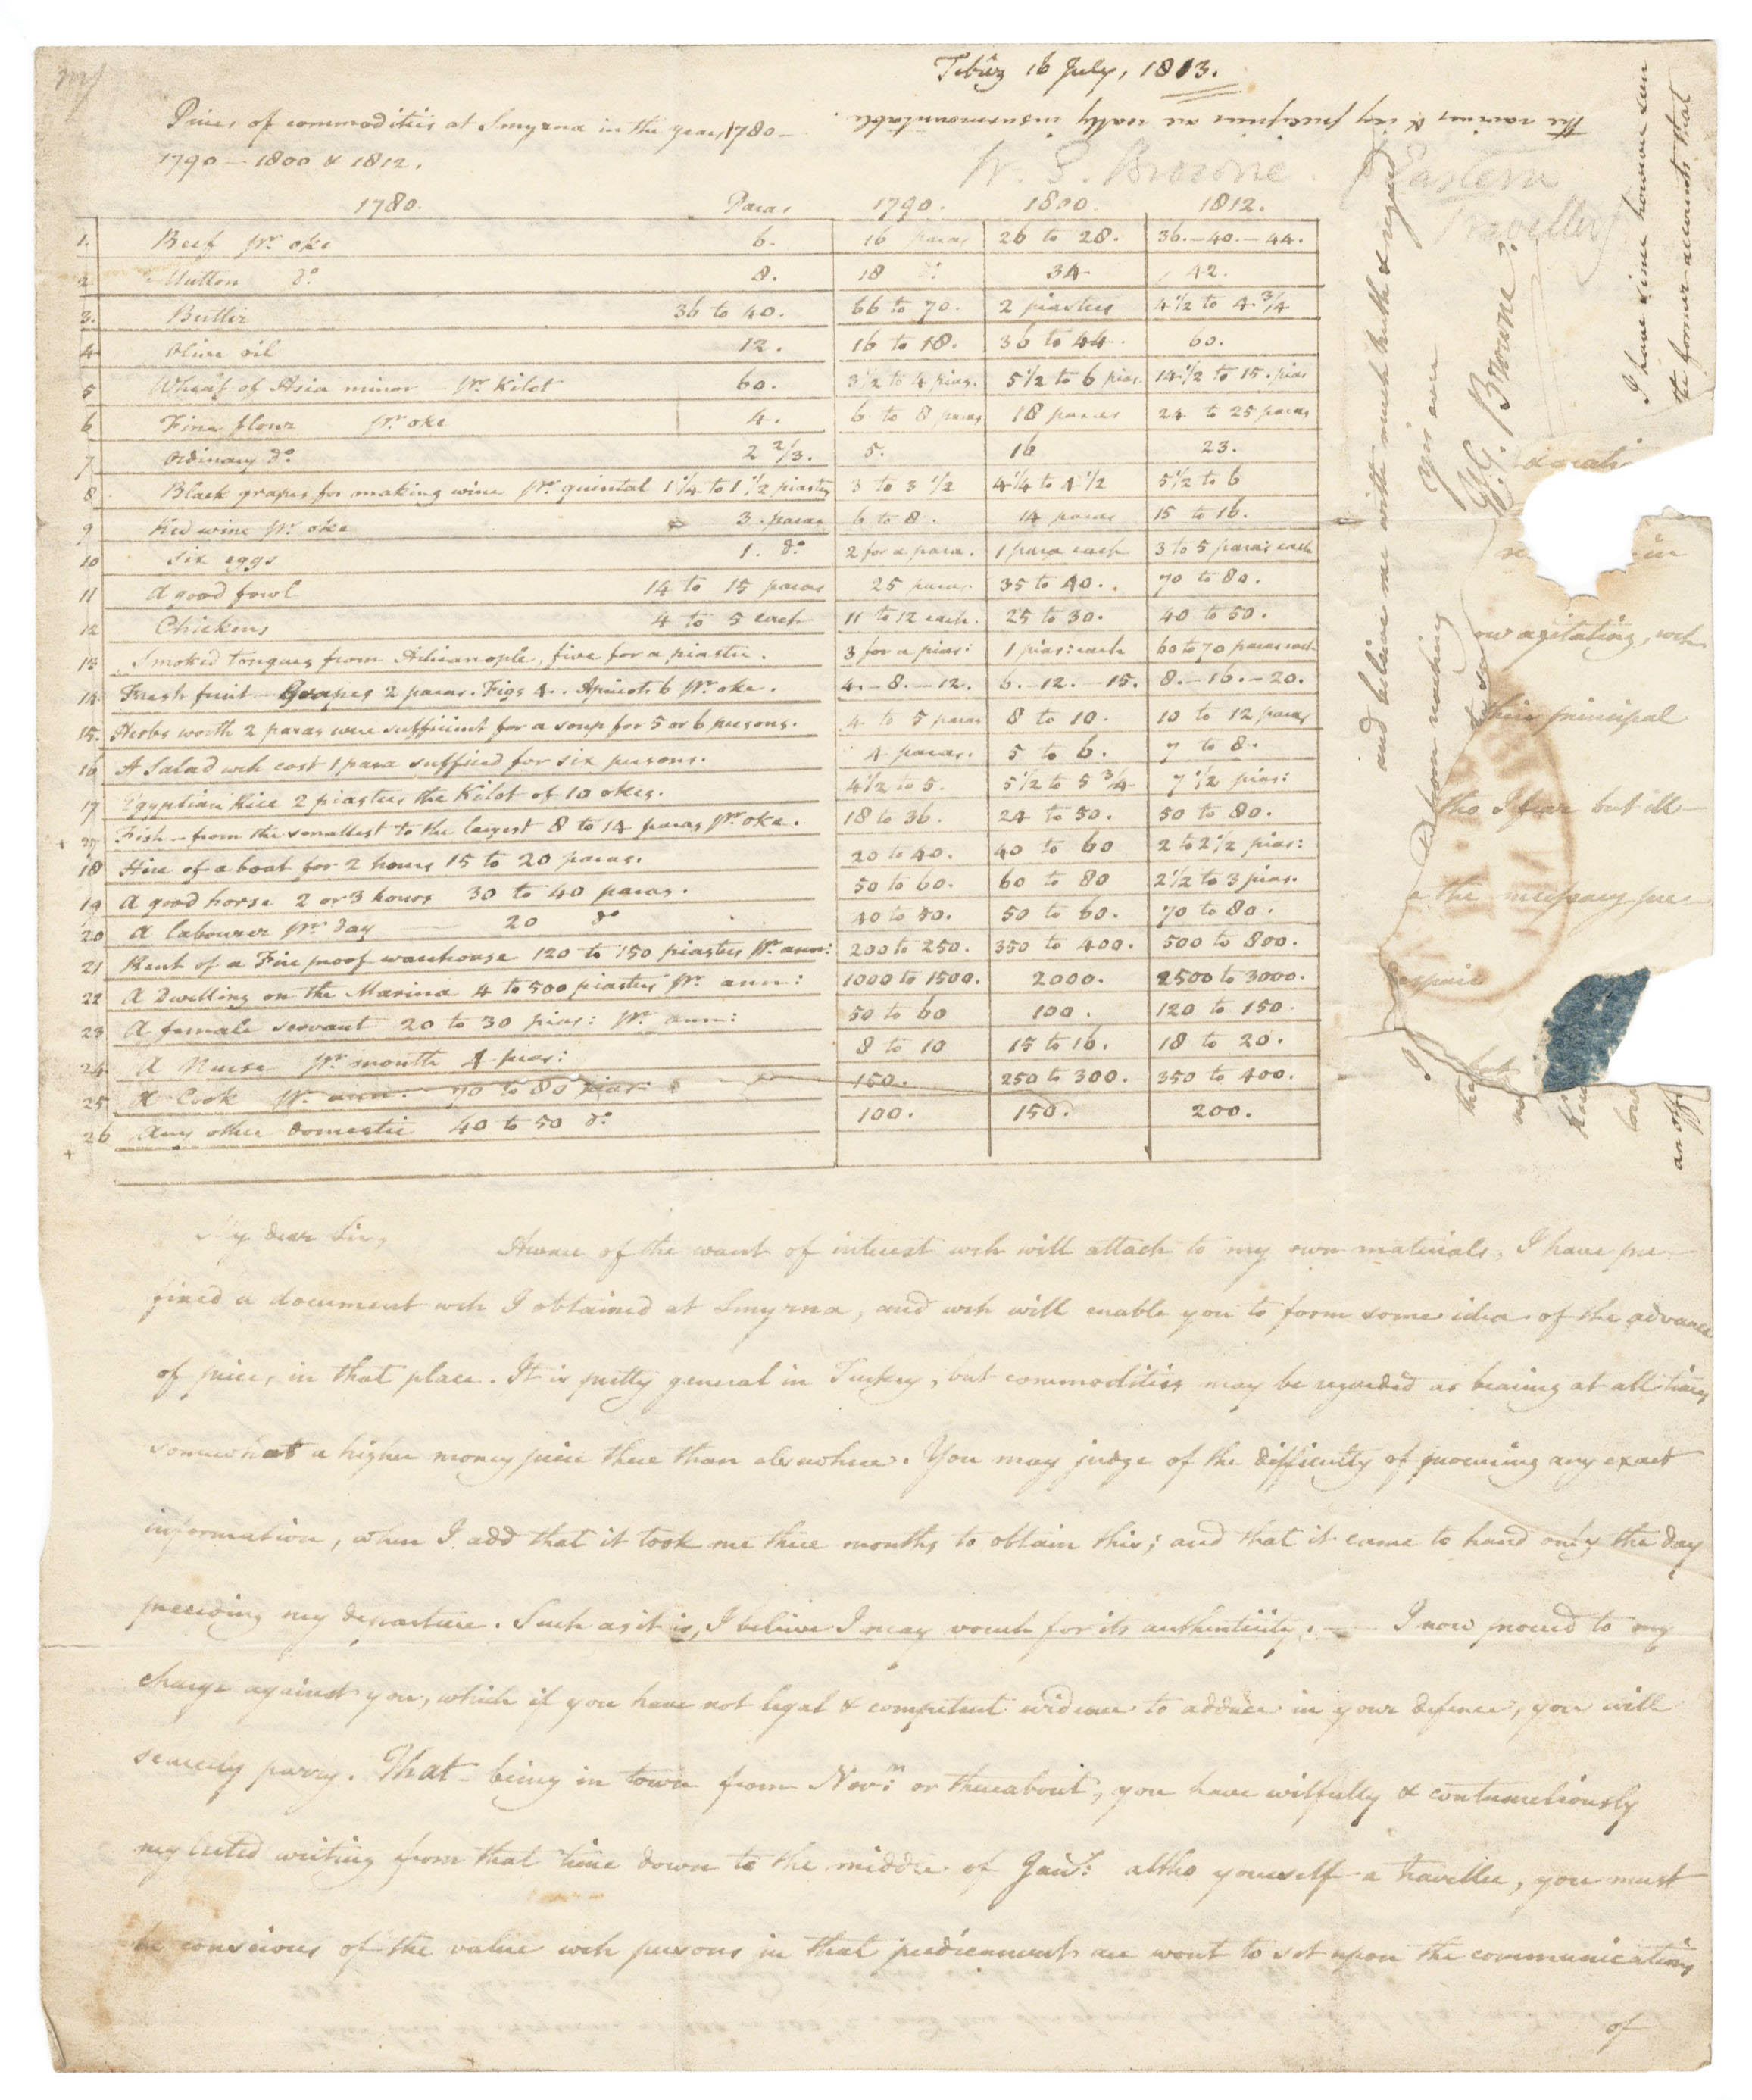 Tebriz 16 July, 1813.
The ravines & icy precipices are really insurmountable.
Prices of commodities at Smyrna in the years 1780 —
1790 — 1800 & 1812.
W. G. Browne Eastern
Traveller
1780. Paras 1790. 1800. 1812.
1. Beef pr. oke 6. 16 paras 26 to 28. 36.-40.-44.
2 Mutton do. 8. 18 do. 34 42.
3. Butter 36 to 40. 66 to 70. 2 piastres 4 1/2 to 4 3/4
4 Olive oil 12. 16 to 18. 36 to 44 60.
5 Wheat of Asia minor pr. Kilot 60. 3 1/2 to 4 pias. 5 1/2 to 6 pias 14 1/2 to 15. pias
6 Fine flour pr. oke 4. 6 to 8 paras 18 paras 24 to 25 paras
7 Ordinary do. 2 2/3. 5. 16 23.
8 Black grapes for making wine pr. quintal 1 1/4 to 1 1/2 piastres 3 to 3 1/2 4 1/4 to 4 1/2 5 1/2 to 6
9 Red wine pr. oke 3. paras 6 to 8. 14 paras 15 to 16.
10 Six eggs 1. do. 2 for a para. 1 para each 3 to 5 paras each
11 A good fowl 14 to 15 paras 25 paras 35 to 40. 70 to 80.
12 Chickens 4 to 5 each 11 to 12 each. 25 to 30. 40 to 50.
13 Smoked tongues from Adrianople, five for a piastre. 3 for a pias: 1 pias: each 60 to 70 paras each
14. Fresh fruit - Grapes 2 paras. Figs 4. Apricots 6 pr. oke. 4.-8.-12. 6.-12.-15. 8.-16.-20.
15. Herbs worth 2 paras were sufficient for a soup for 5 or 6 persons. 4 to 5 paras 8 to 10. 10 to 12 paras
16 A Salad wch cost 1 para sufficed for six persons. 4 paras. 5 to 6. 7 to 8.
17 Egyptian Rice 2 piastres the Kilot of 10 okes. 4 1/2 to 5. 5 1/2 to 5 3/4 7 1/2 pias:
+ 27 Fish - from the smallest to the largest 8 to 14 paras pr. oke. 18 to 36. 24 to 50. 50 to 80.
18 Hire of a boat for 2 hours 15 to 20 paras. 20 to 40. 40 to 60 2 to 2 1/2 pias:
19 A good horse 2 or 3 hours 30 to 40 paras. 50 to 60. 60 to 80 2 1/2 to 3 pias.
20 A labourer pr. day 20 do. 40 to 50. 50 to 60. 70 to 80.
21 Rent of a Fire proof warehouse 120 to 150 piastres pr. ann: 200 to 250. 350 to 400. 500 to 800.
22 A dwelling on the Marina 4 to 500 piastres pr. ann: 1000 to 1500. 2000. 2500 to 3000.
23 A female servant 20 to 30 pias: pr. ann: 50 to 60 100. 120 to 150.
24 A Nurse pr. month 4 pias: 8 to 10 15 to 16. 18 to 20.
25 A Cook pr. ann: 70 to 80 pias: 150. 250 to 300. 350 to 400.
26 Any other domestic 40 to 50 do. 100. 150. 200.
+
and believe me with much truth & regard
Yrs ever
W. G. Browne.
I have since however seen
the former accounts that
from reaching
now agitating, wch
their principal
tho I fear but ill
the necessary pre
My dear Sir, Aware of the want of interest wch will attach to my own materials, I have pre-
fixed a document wch I obtained at Smyrna, and wch will enable you to form some idea of the advance
of price, in that place. It is pretty general in Turkey, but commodities may be regarded as bearing at all times
somewhat a higher money price there than elsewhere. You may judge of the difficulty of procuring any exact
information, when I add that it took me three months to obtain this; and that it came to hand only the day
preceding my departure. Such as it is, I believe I may vouch for its authenticity. — I now proceed to my
charge against you, which if you have not legal & competent evidence to adduce in your defence, you will
scarcely parry. That being in town from Novr: or thereabout, you have wilfully & contumeliously
neglected writing from that time down to the middle of Jany: altho yourself a traveller, you must
be conscious of the value wch persons in that predicament are wont to set upon the communications
of